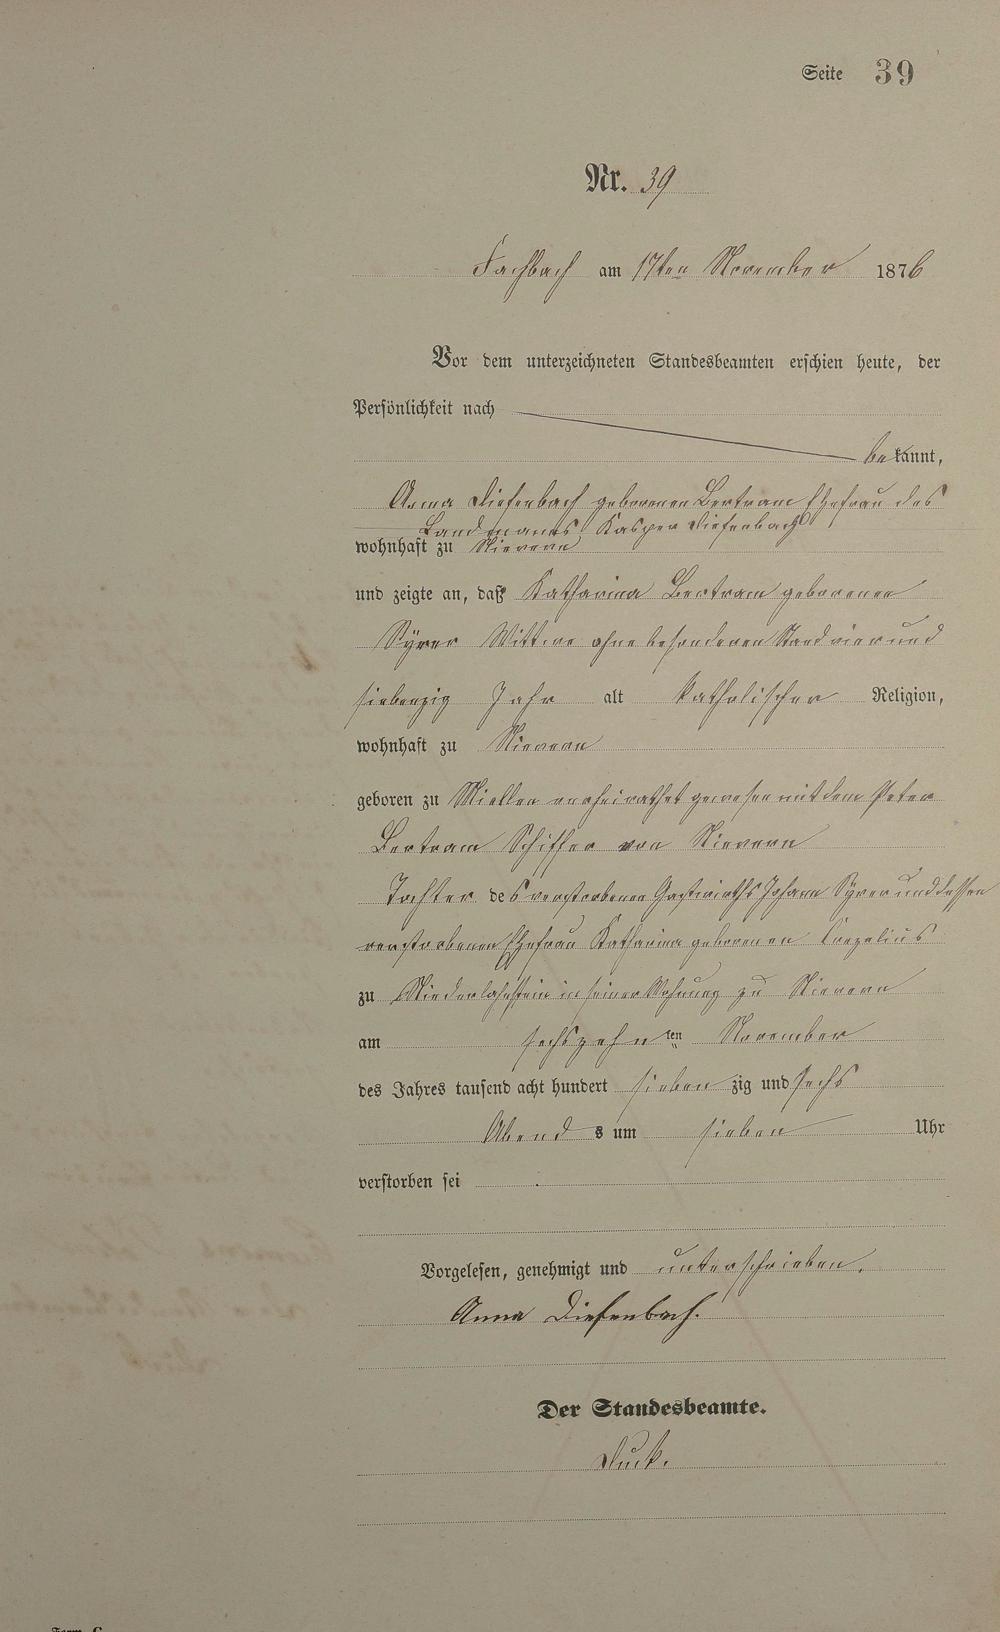 Seite 39
Nr. 39
Fachbach am 17ten November 1876
Vor dem unterzeichneten Standesbeamten erschien heute, der
Persönlichkeit nach
bekannt,
Anna Diefenbach geborenen Bertram Ehefrau des
Landmanns Kasper Diefenbach
wohnhaft zu Nievern
und zeigte an, daß Katharina Bertram geborenen
Syrer Wittwe ohne besonderen Stand vier und
siebenzig Jahr alt katholischer Religion,
wohnhaft zu Nievern
geboren zu Miellen verheirathet gewesen mit dem Peter
Bertram Schiffer von Nievern
Tochter des verstorbenen Gastwirths Johann Syrer und dessen
verstorbenen Ehefrau Katharina geborenen
zu Niederlahnstein in seiner Wohnung zu Nievern
am sechszehnten November
des Jahres tausend acht hundert siebenzig und sechs
Abends um sieben Uhr
verstorben sei
Vorgelesen, genehmigt und unterschrieben.
Anna Diefenbach.
Der Standesbeamte.